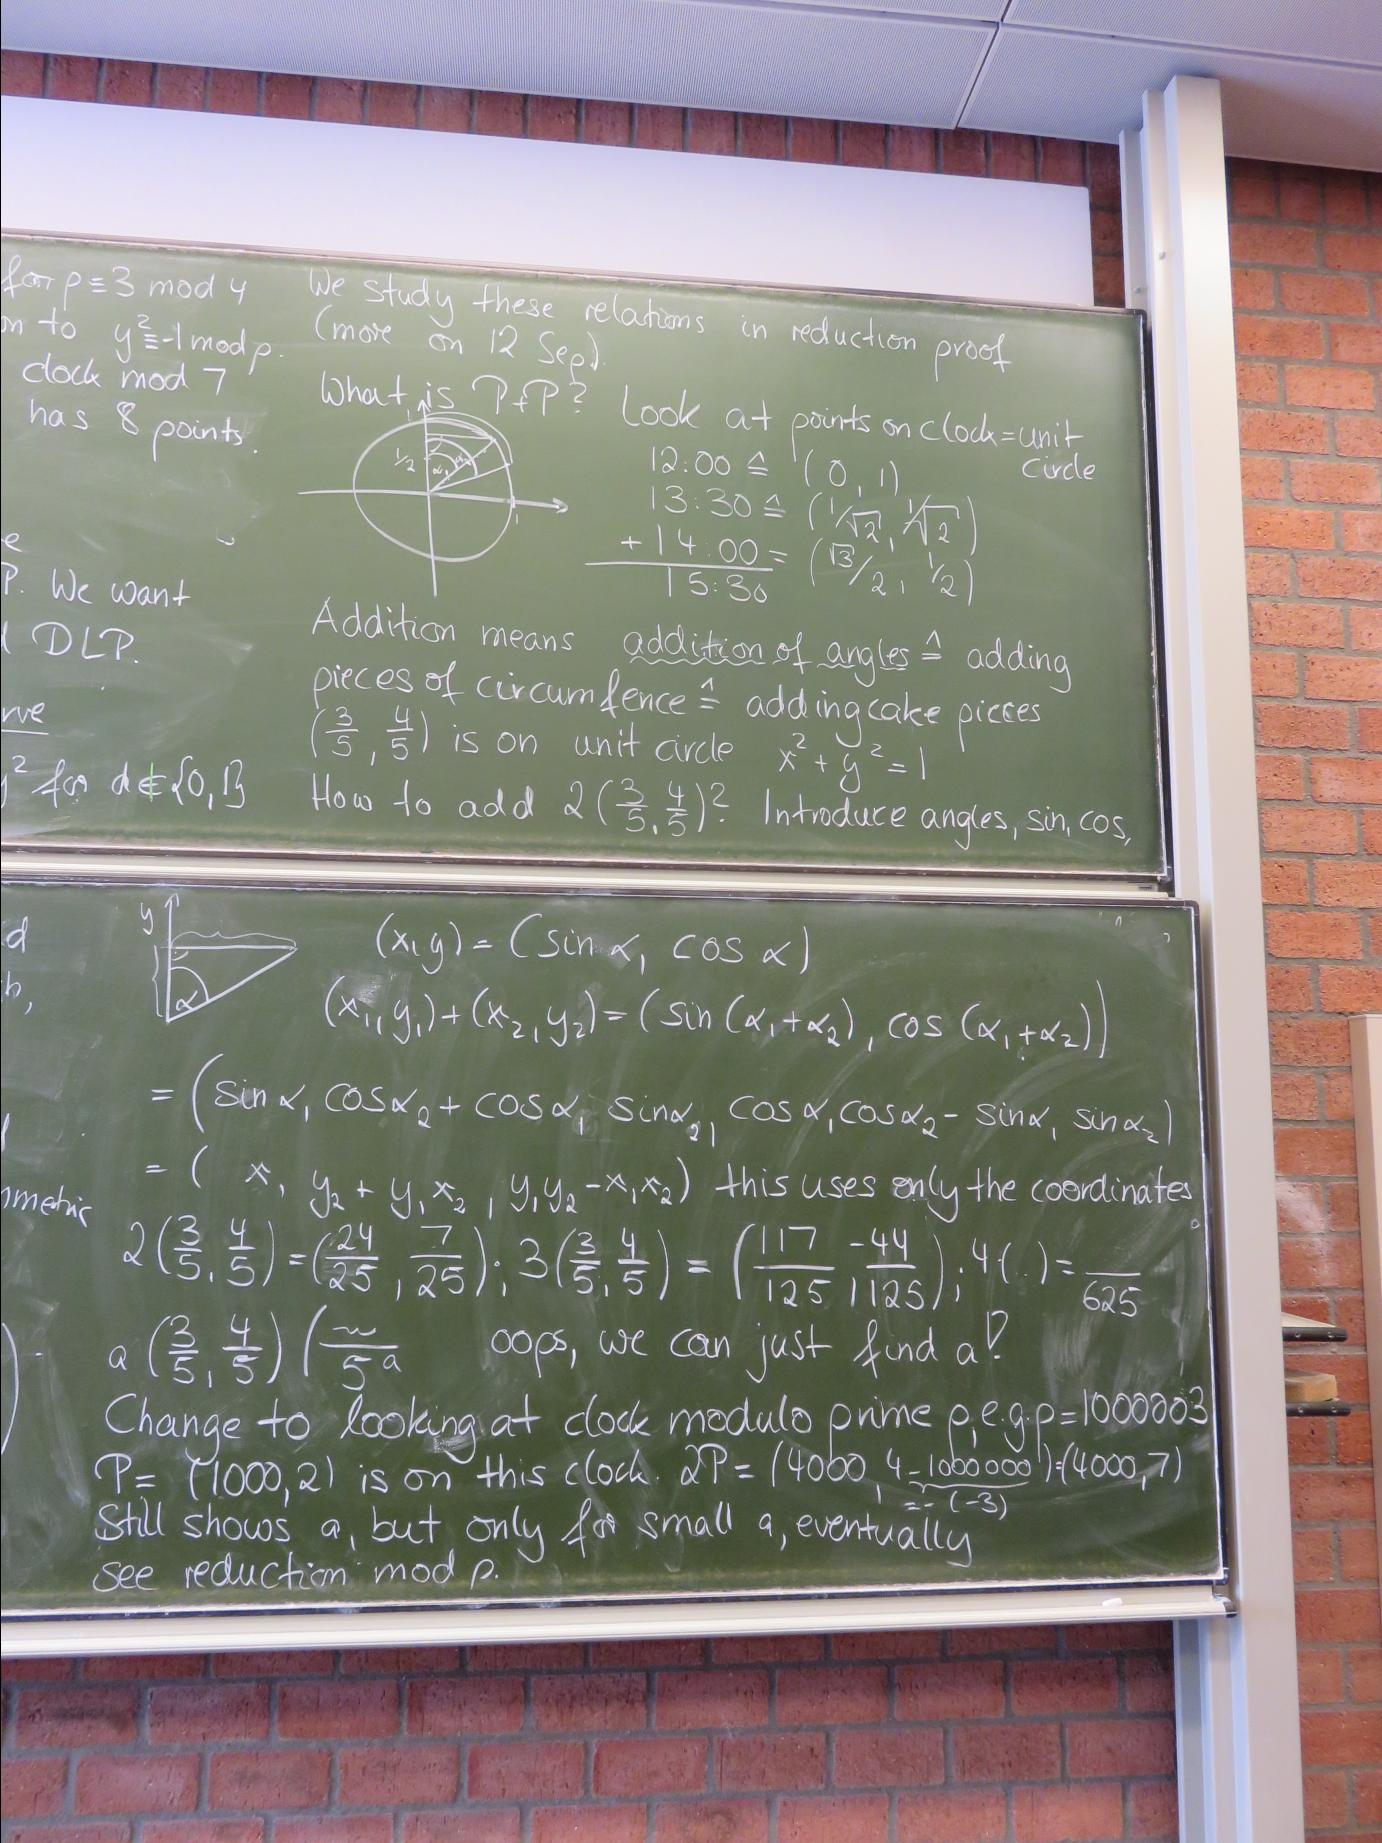 for p ≡ 3 mod 4
on to y² ≡ -1 mod p.
clock mod 7
has 8 points.
e
P. We want
DLP.
rve
y² for d ∉ {0,1}
We study these relations in reduction proof
(more on 12 Sep).
What is P+P?
1
1/2
α₁
1
Look at points on clock = unit
circle
12:00 ≙ (0, 1)
13:30 ≙ (1/√2, 1/√2)
+ 14:00 = (√3/2, 1/2)
15:30
Addition means addition of angles ≙ adding
pieces of circumfence ≙ adding cake pieces
(3/5, 4/5) is on unit circle x² + y² = 1
How to add 2(3/5, 4/5)? Introduce angles, sin, cos,
d
b,
mmetric
y
α
(x,y) = (sin α, cos α)
(x₁, y₁) + (x₂, y₂) = (sin (α₁+α₂), cos (α₁+α₂))
= (sin α₁ cos α₂ + cos α₁ sin α₂, cos α₁ cos α₂ - sin α₁ sin α₂)
= ( x₁ y₂ + y₁ x₂, y₁y₂ - x₁x₂) this uses only the coordinates
2(3/5, 4/5) = (24/25, 7/25); 3(3/5, 4/5) = (117/125, -44/125); 4·( ) = /625
a (3/5, 4/5) ( /5^a oops, we can just find a!?
Change to looking at clock modulo prime p, e.g. p=1000003
P = (1000, 2) is on this clock. 2P = (4000, 4-1000000) = (4000, 7)
= -(-3)
Still shows a, but only for small a, eventually
see reduction mod p.